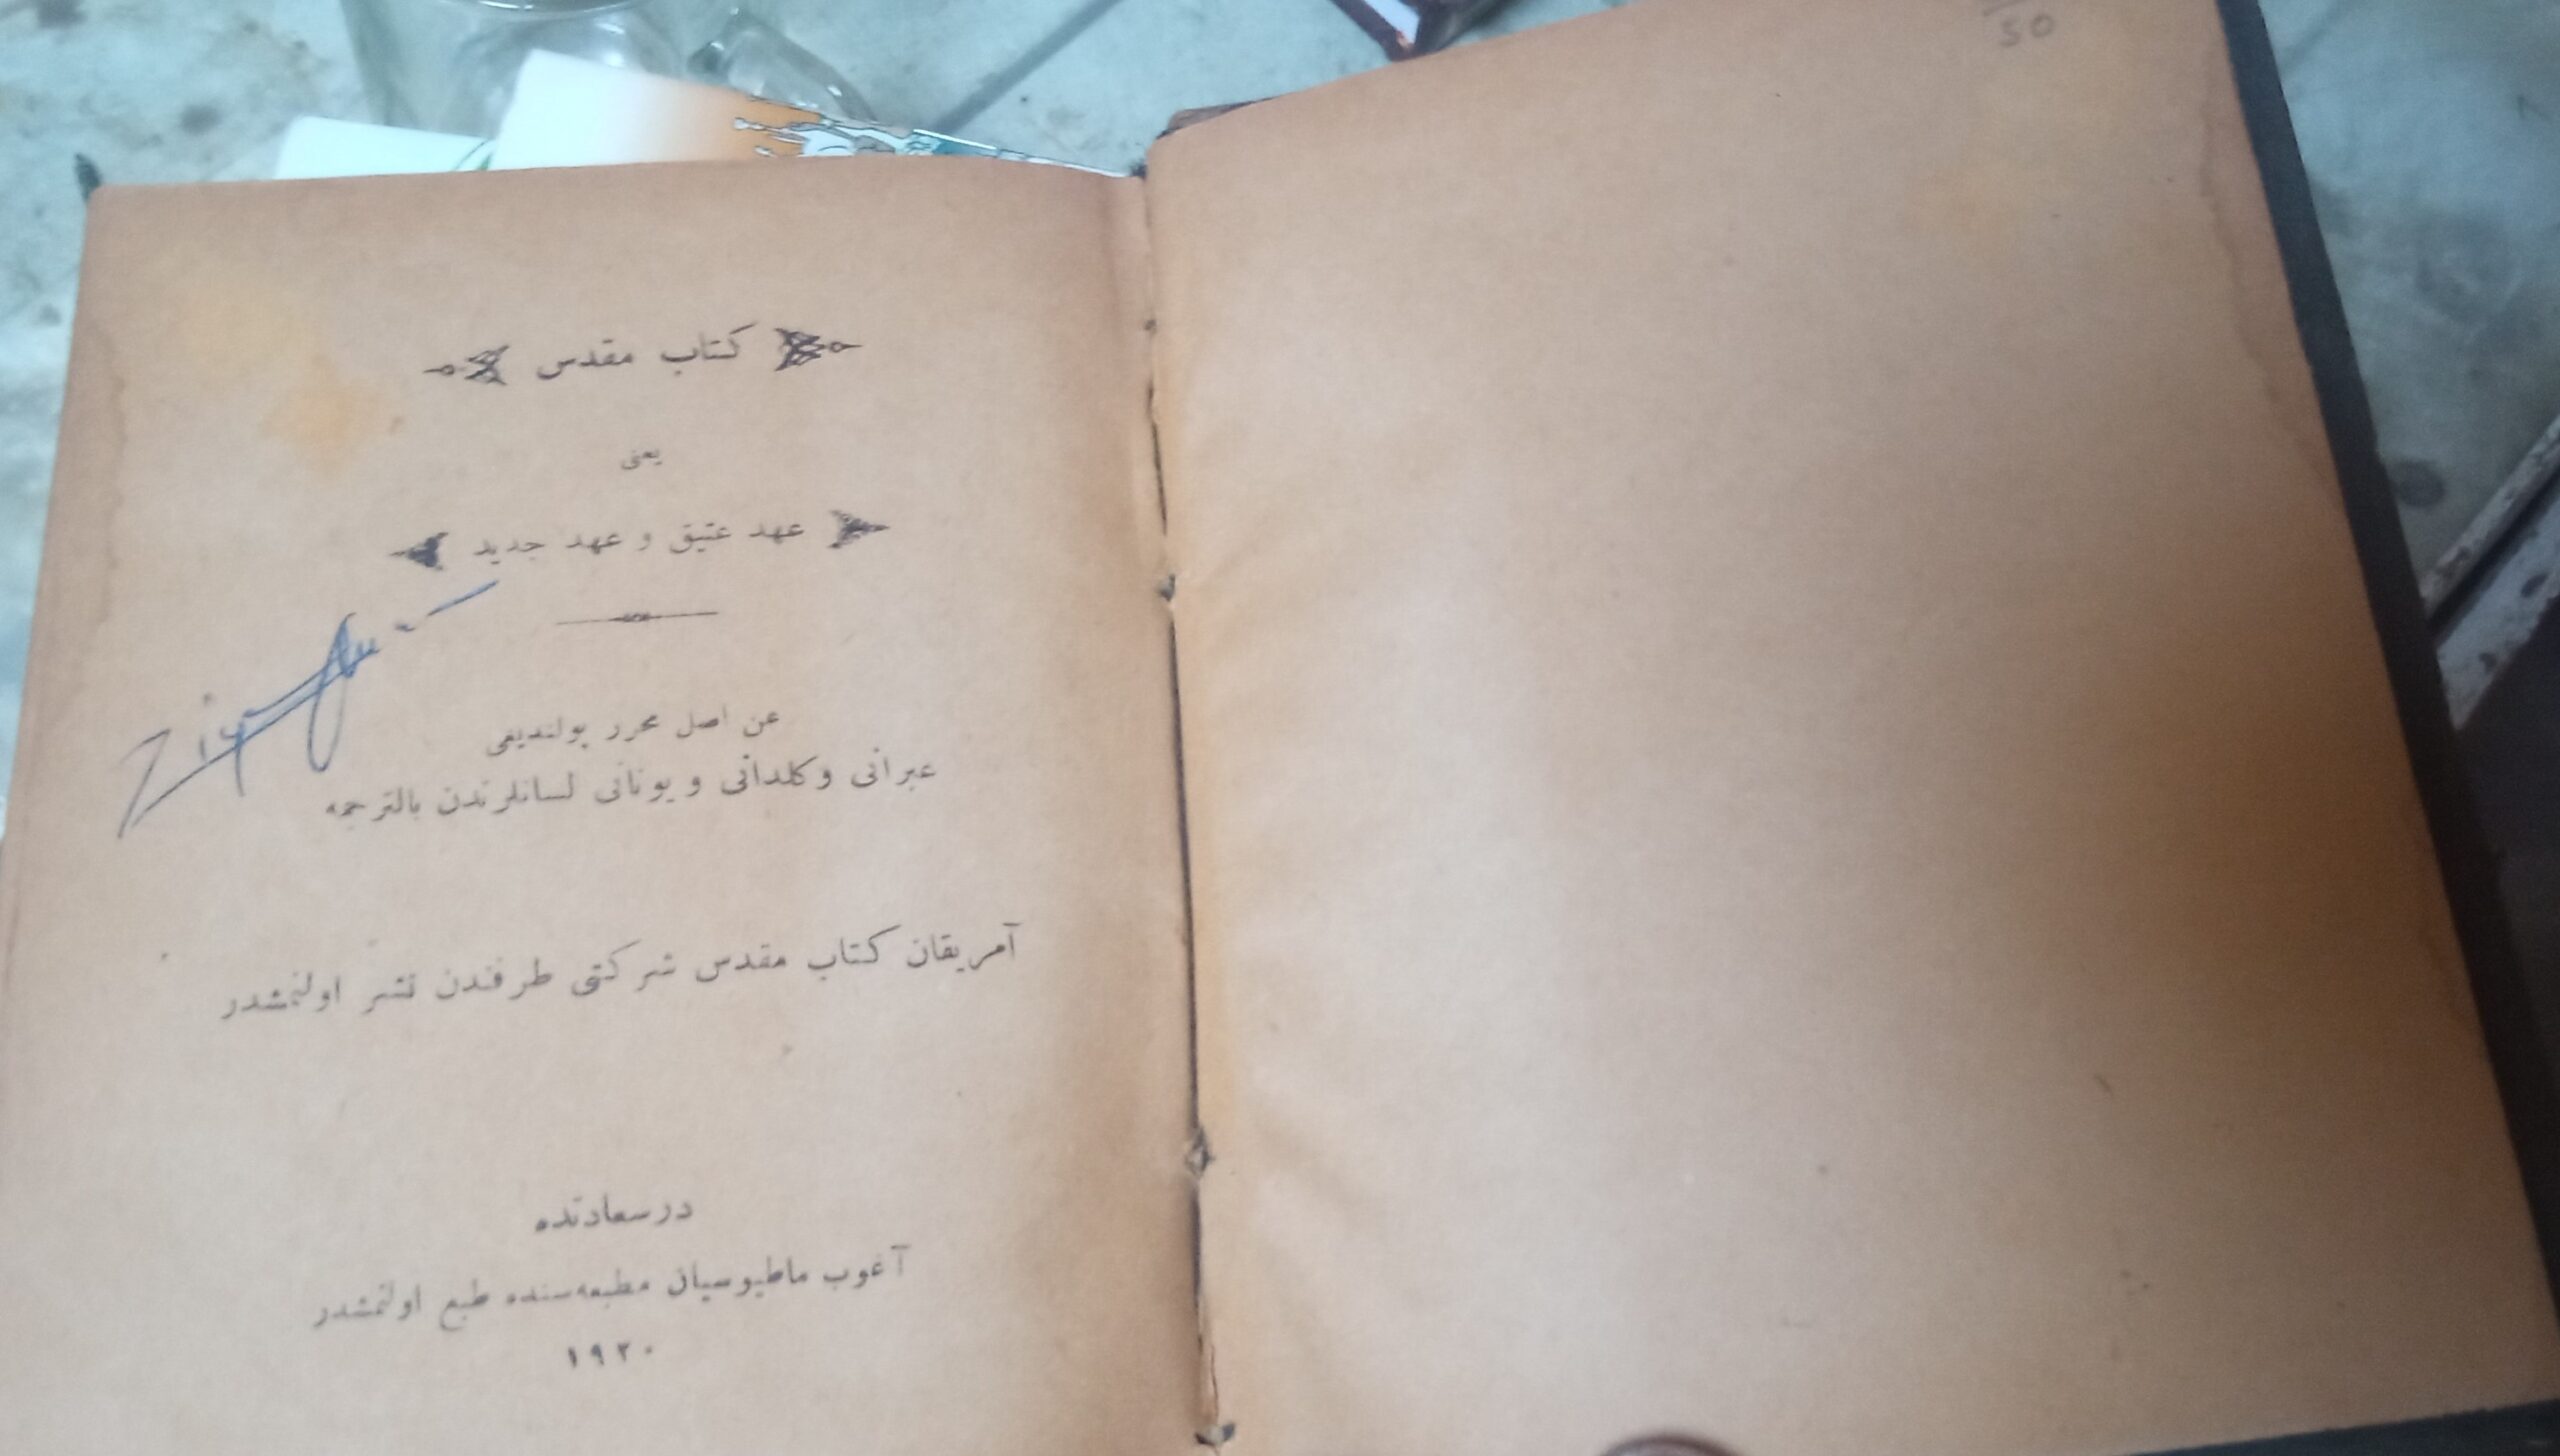 كتاب مقدس
يعنى
عهد عتيق و عهد جديد
عن اصل محرر بولنديغى
عبرانى وكلدانى و يونانى لسانلرندن بالترجمه
آمريقان كتاب مقدس شركتى طرفندن نشر اولنمشدر
درسعادتده
آغوب ماطيوسيان مطبعه‌سنده طبع اولنمشدر
١٩٢٠
50